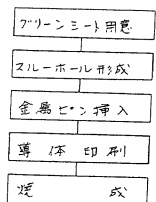 グリーンシート用意
スルーホール形成
金属ピン挿入
導体印刷
焼成